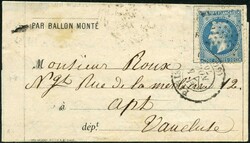 PAR BALLON MONTÉ
Monsieur Roux
Ngt Rue de la 12
à
apt
dép.t Vaucluse